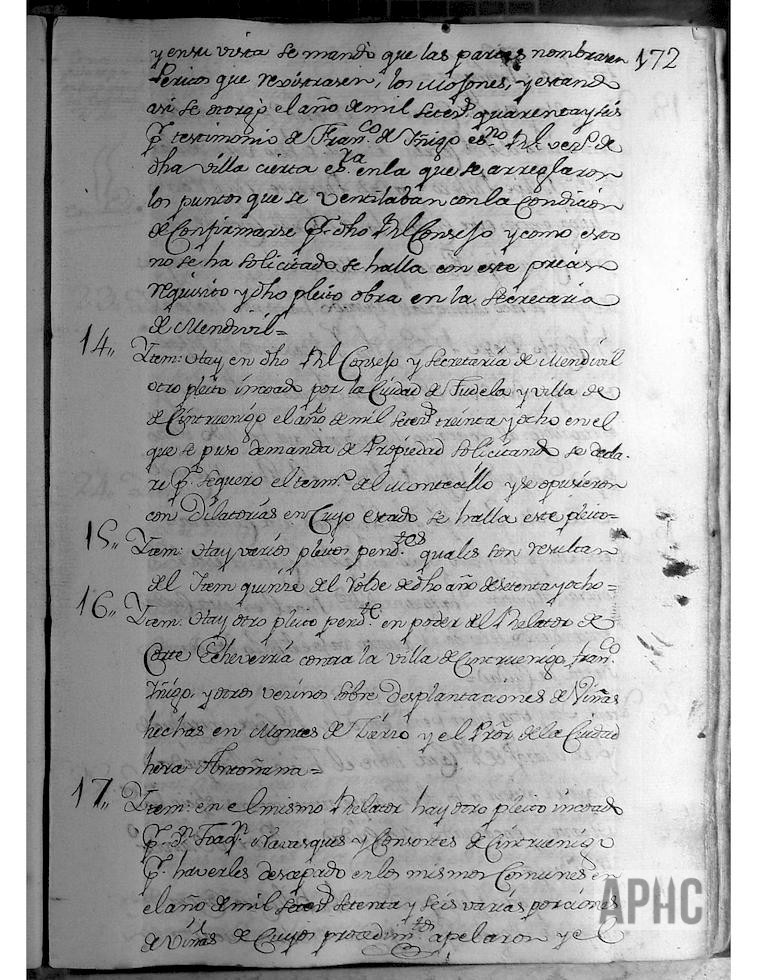 172
y en su vista se mandò que las partes nombrasen
Peritos que rexistrasen, los mojones, y estando
asi se otorgò el año de mil setecs. quarenta y seis
pr. testimonio de Franco. de Yñigo esno. Rl. vecº. de
dha villa cierta esra. en la que se arreglaron
los puntos que se ventilaban con la condición
de Confirmarse pr. dho Rl. Consejo y como esto
no se ha solicitado se halla con este preciso
requisito y dho pleito obra en la Secretaría
de Mendivil=
14,, Ytem: Hay en dho Rl. Consejo y Secretaría de Mendivil
otro pleito incoado por la Ciudad de Tudela y villa de
de Cintruenigo el año de mil setecs. treinta y ocho en el
que se puso demanda de Propiedad solicitando se decla-
re pr. seguero el termo. del Montecillo y se opusieron
con Dilatorias en Cuyo estado se halla este pleito-
15,, Ytem: Hay varios pleitos pendtes. quales son resultan
del Ytem quinze del Rolde de dho año de setenta y ocho=
16,, Ytem: Hay otro pleito pendte. en poder del Relator de
Corte Echeverria contra la villa de Cintruenigo, Franco.
Yñigo, y otros vecinos sobre desplantaciones de Viñas
hechas en Montes de Cierzo y el Pror. de la Ciudad
hera Antoñana=
17,, Ytem: en el mismo Relator hay otro pleito incoado
pr. Dn. Joaqn. Navasques y Consortes de Cintruenigo
pr. haverles descepado en los mismos Comunes en
el año de mil setecs. setenta y seis varias porciones
de Viñas de Cuyos procedimtos. apelaron y el
APHC